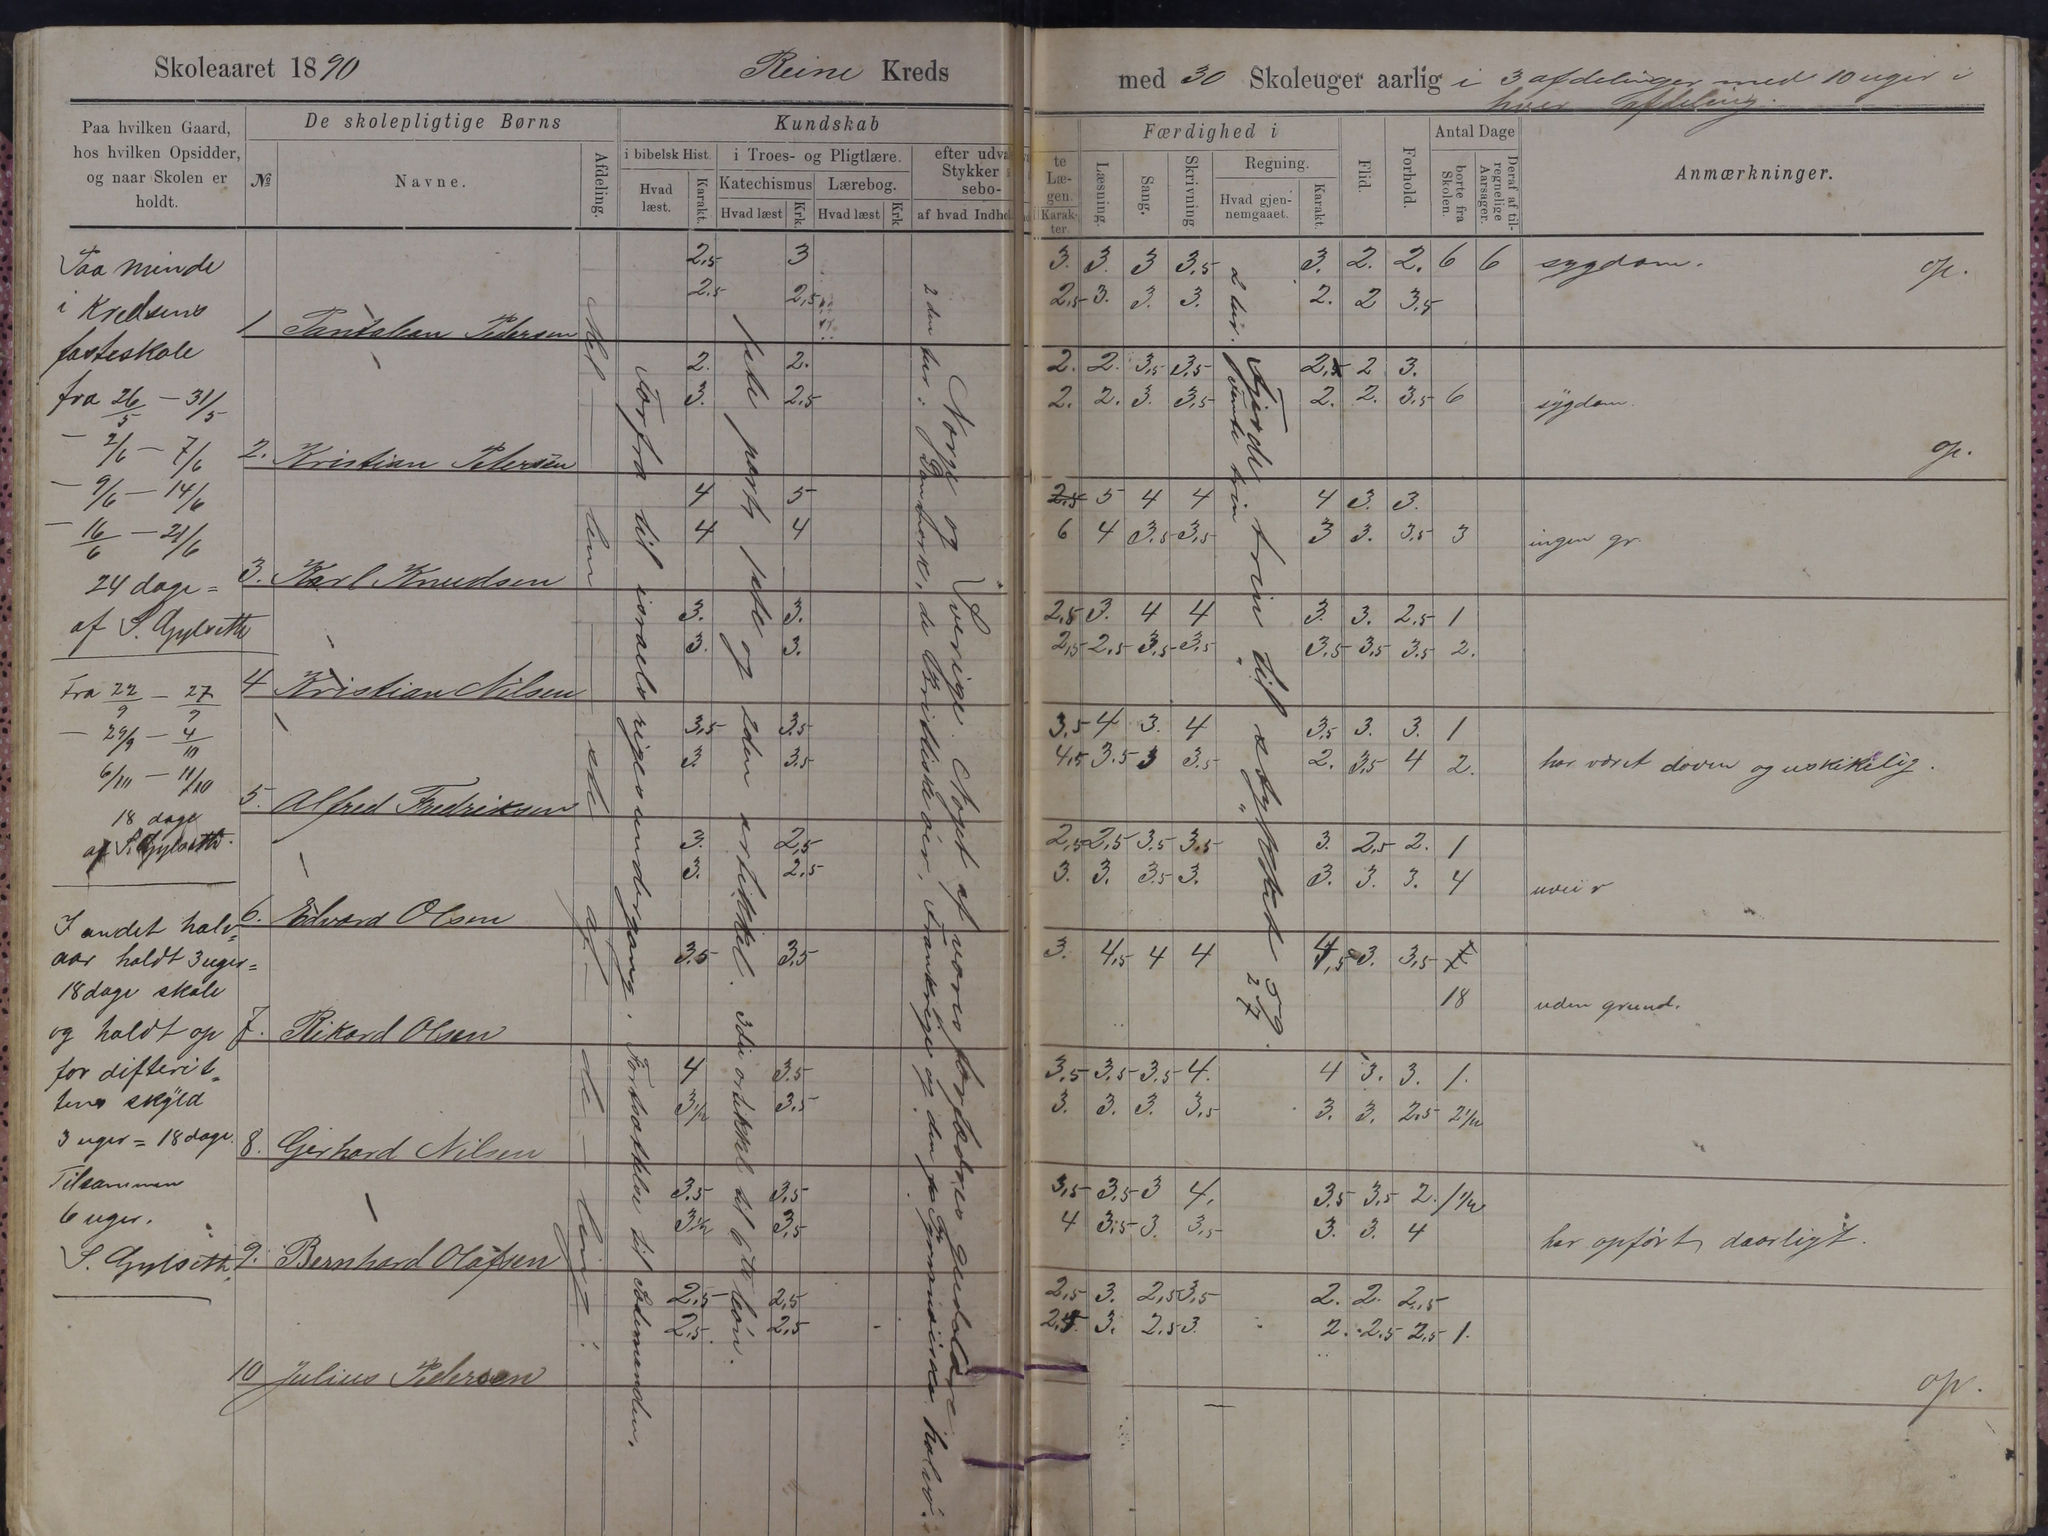 Skoleaaret 1890 Reine Kreds
med 30 Skoleuger aarlig i 3 afdelinger med 10 uger i
hver afdeling.
Paa hvilken Gaard, hos hvilken Opsidder, og naar Skolen er holdt.
De skolepligtige Børns
№
Navne.
Afdeling.
Kundskab
i bibelsk Hist.
Hvad læst.
Karakt.
i Troes- og Pligtlære.
Katechismus
Hvad læst
Krk.
Lærebog.
Hvad læst
Krk
efter udva
Stykker i
sebo-
af hvad Indho
te Læ-
gen.
Karak-
ter.
Færdighed i
Læsning.
Sang.
Skrivning
Regning.
Hvad gjen-
nemgaaet.
Karakt.
Flid.
Forhold.
Antal Dage
borte fra Skolen.
Deraf af til-
regnelige
Aarsager.
Anmærkninger.
Paa minde
i Kredsens
fasteskole
fra 26/5 – 31/5
– 2/6 – 7/6
– 9/6 – 14/6
– 16/6 – 21/6
24 dage =
af S. Gylseth
Fra 22/9 – 27/9
– 29/9 – 4/10
6/10 – 11/10
18 dage
af S. Gylseth.
I andet halv-
aar holdt 3 uger =
18 dage skole
og holdt op
for difterit-
tens skyld
3 uger = 18 dage.
Tilsammen
6 uger.
S. Gylseth.
Mel – lem – ste af – de – ling:
Forfra til israels riges undergang. Fortsættelse til
1ste part 1ste og 2den artikkel. 3die artikkel til 6te bøn.
Norge og Sverige. Noget af vores forfædres gudelære
2den tur: Danmark, de Brittiske øer, Frankrige og den pyrenæiske halvø.
Fjerde trin til stykket 59.
2 tur. femte trin " " 27
2,5 3 3. 3. 3 3,5 3. 2. 2. 6 6 sygdom. op.
2,5 2,5 2,5 3. 3. 3. 2. 2 3,5
1 Pantalean Pedersen
2. 2. 2. 2. 3,5 3,5 2,5 2 3.
3. 2,5 2. 2. 3. 3,5 2. 2. 3,5 6 sygdom.
2. Kristian Petersen op.
4 5 2,5 5 4 4 4 3. 3.
4 4 6 4 3,5 3,5 3 3. 3,5 3 ingen gr.
3. Karl Knudsen
3. 3. 2,5 3. 4 4 3. 3. 2,5 1
3. 3. 2,5 2,5 3,5 3,5 3,5 3,5 3,5 2.
4 Kristian Nilsen
3,5 3,5 3,5 4 3. 4 3,5 3. 3. 1
3. 3,5 4,5 3,5 3 3,5 2. 3,5 4 2. har været doven og uskikelig.
5. Alfred Fredriksen
3. 2,5 2,5 2,5 3,5 3,5 3. 2,5 2. 1
3. 2,5 3. 3. 3,5 3. 3. 3. 3. 4 uveir
6. Edvard Olsen
3,5 3,5 3. 4,5 4 4 4,5 3. 3,5 7
18 uden grund.
7. Rikard Olsen
4 3,5 3,5 3,5 3,5 4. 4 3. 3. 1.
3 1/2 3,5 3. 3. 3. 3,5 3. 3. 2,5 2 1/2
8. Gerhard Nilsen
3,5 3,5 3,5 3,5 3 4. 3,5 3,5 2. 1 1/2
3 1/2 3,5 4 3,5 3. 3,5 3. 3. 4 har opført daarligt.
9. Bernhard Olafsen
2,5 2,5 2,5 3. 2,5 3,5 2. 2. 2,5
2,5 2,5 2,5 3. 2,5 3. 2. 2,5 2,5 1.
10 Julius Pedersen op.